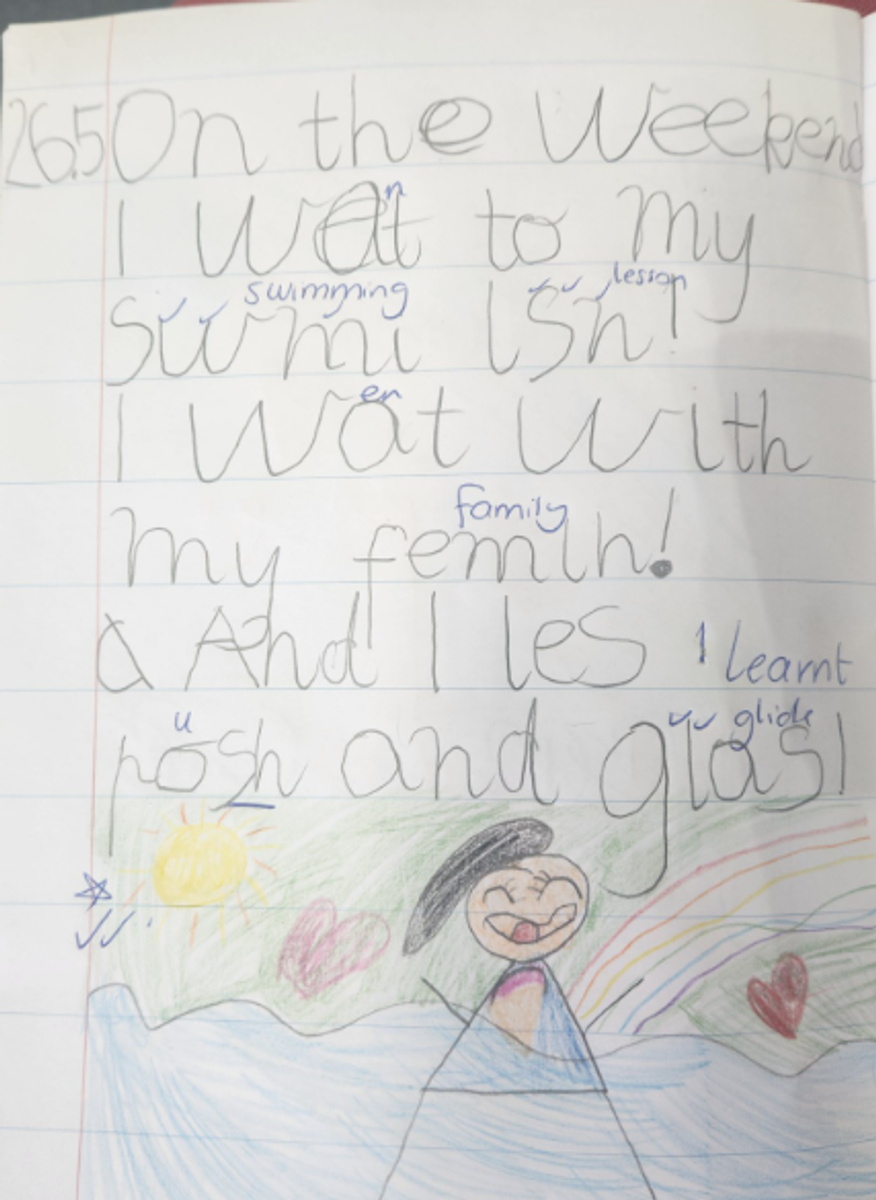 26.5 On the Weekend
n
I Wat to my
swimming lesson
Swmi lSh!
en
I Wat With
family
my femlh!
a And I les I learnt
u glide
posh and glas!